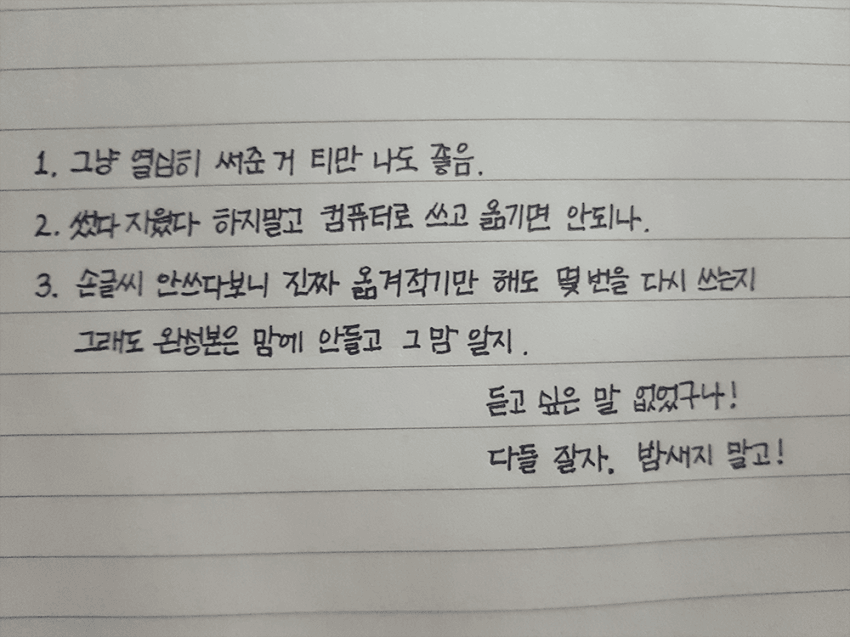 1. 그냥 열심히 써준 거 티만 나도 좋음.
2. 썼다 지웠다 하지말고 컴퓨터로 쓰고 옮기면 안되나.
3. 손글씨 안쓰다보니 진짜 옮겨적기만 해도 몇 번을 다시 쓰는지
그래도 완성본은 맘에 안들고 그 맘 알지.
듣고 싶은 말 없었구나!
다들 잘자. 밤새지 말고!